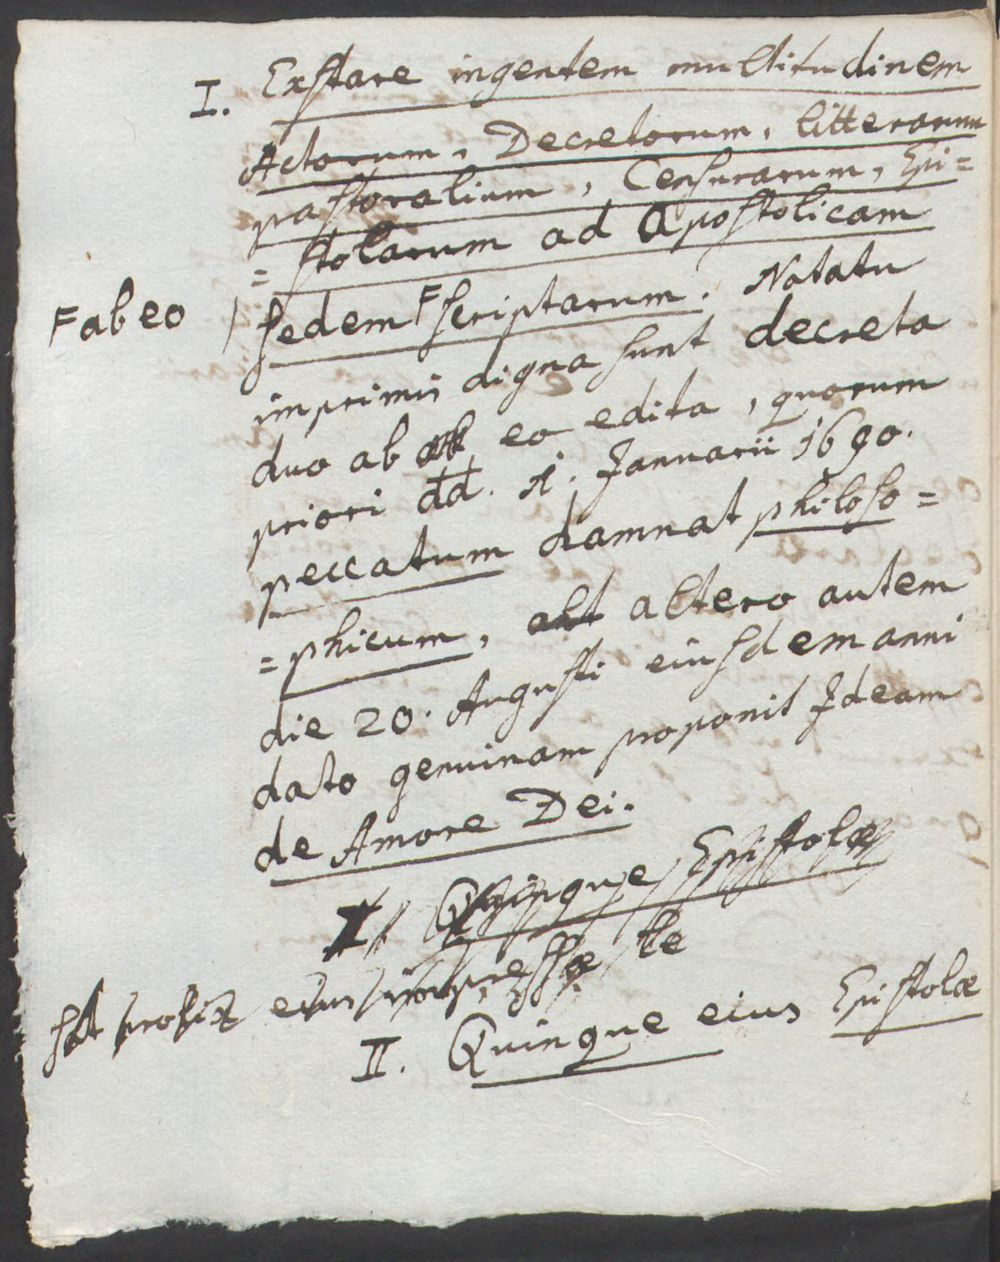 I. Exstare ingentem multitudinem
Actorum, Decretorum, litterarum
pastoralium, Censurarum, Epi=
=stolarum ad Apostolicam
F ab eo / sedem F scriptarum. Notatu
imprimis digna sunt decreta
duo ab eo edita, quorum
priori dd. 1. Januarii 1690.
peccatum damnat philoso=
=phicum, altero autem
die 20. Augusti eiusdem anni
dato genuinam proponit Ideam
de Amore Dei.
II Quinque Epistolæ
eius impressæ te
II. Quinque eius Epistolæ